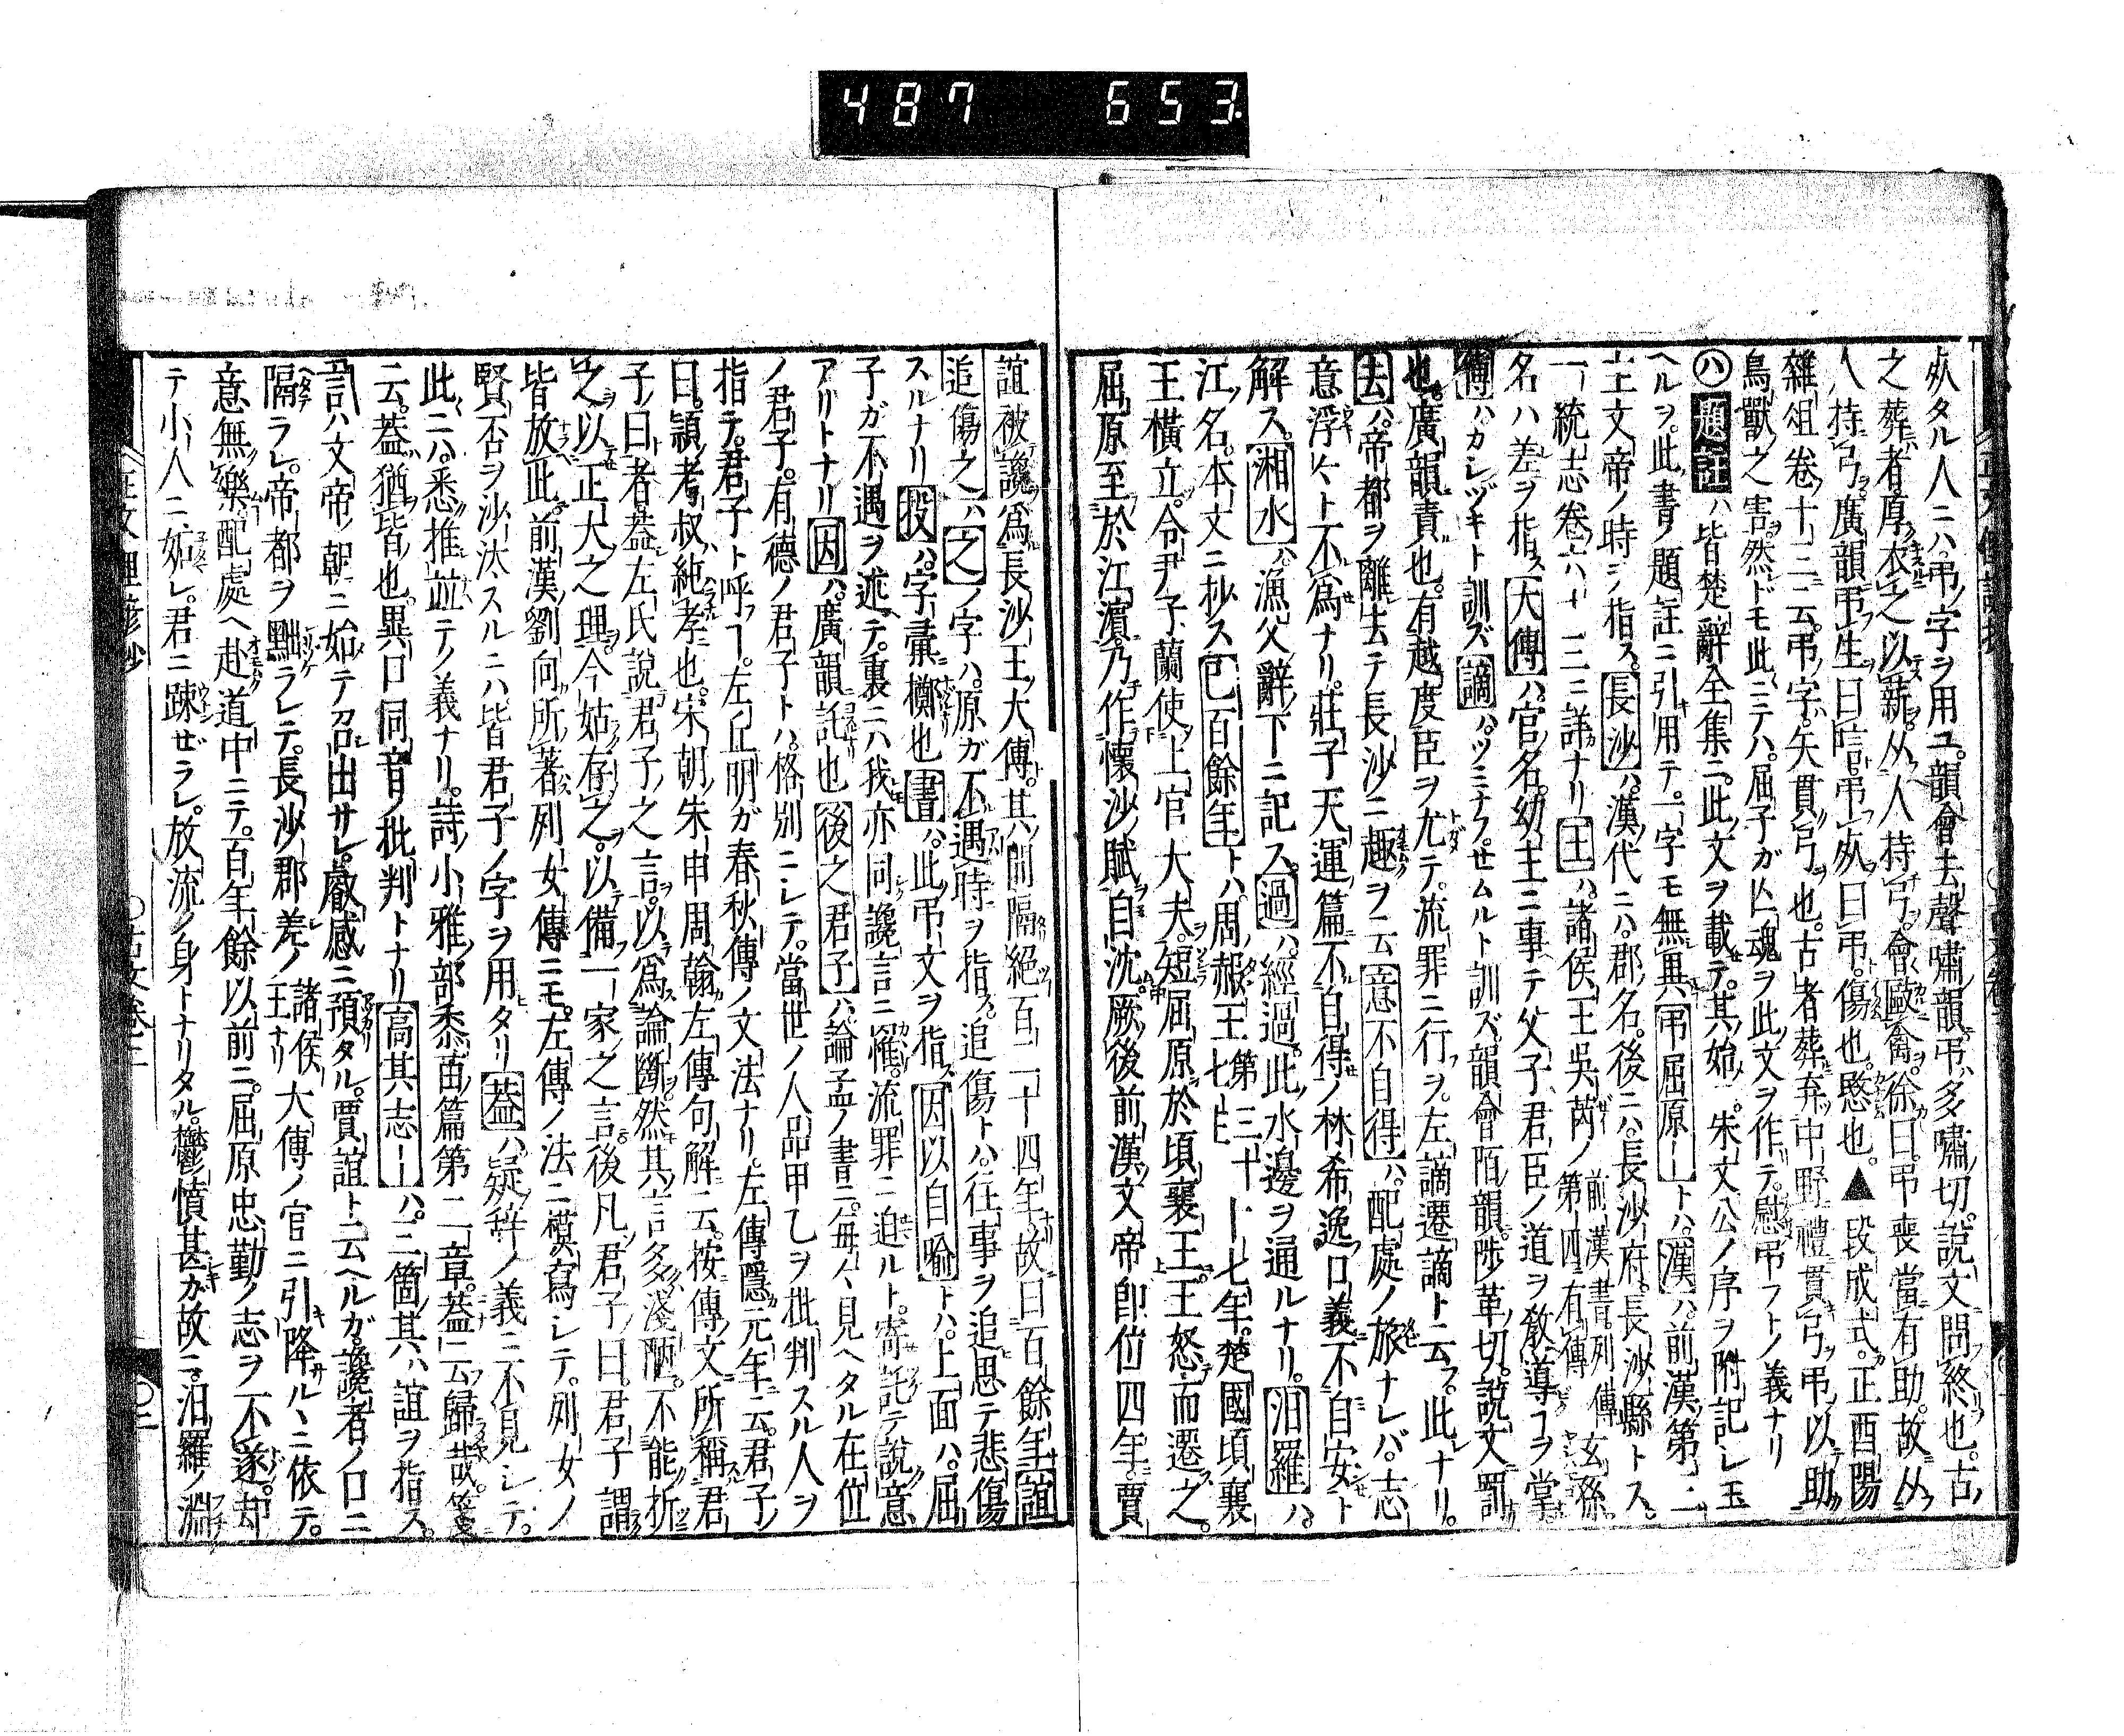 487 653
灰タル人ニハ。弔ノ字ヲ用ユ。韻會去聲嘯韻。弔、多嘯切。說文問終也。古
之葬者。厚衣之以薪。从人持弓。會敺禽。徐曰弔喪當有助。故从
人持弓。廣韻弔生曰唁。弔死曰弔。傷也。愍也。▲段成式。正酉陽
雜俎卷十二云。弔ノ字。矢貫弓也。古者葬弃中野。禮貫弓弔。以助
鳥獸之害。然ドモ此ニテハ。屈子ガ亡魂ヲ此文ヲ作テ。慰弔フトノ義ナリ
㋩題註ハ皆楚辭全集ニ。此文ヲ載テ。其始。朱文公ノ序ヲ附記シ玉
ヘルヲ。此書ノ題註ニ引用テ。一字モ無異弔屈原――トハ。漢ハ前漢第二
主文帝ノ時ヲ指ス。長沙ハ漢代ニハ。郡名。後ニハ。長沙府。長沙縣トス。
一統志卷六十三ニ詳ナリ王ハ諸侯王吳芮ノ前漢書列傳第四有傳玄孫。
名ハ差ヲ指ス大傳ハ官名。幼主ニ事テ父子君臣ノ道ヲ敎導コヲ掌。
傅ハカシヅキト訓ズ謫ハ。ツミナフ。セムルト訓ズ韻會陌韻。陟革切。說文罰
也。廣韻責也。有越度臣ヲ尤テ。流罪ニ行フヲ。左謫遷謫ト云フ。此ナリ。
去ハ帝都ヲ離去テ長沙ニ趣ヲ云意不自得ハ。配處ノ旅ナレバ。志
意浮々ト不爲ナリ。莊子天運篇不自得ノ林希逸口義不自安ト
解ス。湘水ハ漁父辭下ニ記ス。過ハ經過。此水邊ヲ通ルナリ。汨羅ハ
江名。本文ニ抄ス已百餘年トハ。周赧王第三十七主――七年。楚國頃襄
王橫立。令尹子蘭使上官大夫。短屈原於頃襄王。王怒而遷之。
屈原至於江濱。乃作懷沙賦自沈。厥後前漢文帝卽位四年。賈
誼被讒爲長沙王大傅。其間隔絕百二十四年。故曰百餘年誼
追傷之ハ之ノ字ハ。原ガ不遇時ヲ指ス。追傷トハ。往事ヲ追思テ悲傷
スルナリ投ハ。字彙擲也書ハ此弔文ヲ指ス因以自喩トハ。上面ハ。屈
子ガ不遇ヲ述テ。裏ニハ我亦同讒言ニ罹。流罪ニ迫ルト。寄託テ說意
アリトナリ因ハ。廣韻託也後之君子ハ論孟ノ書ニ。毎々見ヘタル在位
ノ君子。有德ノ君子トハ。格別ニシテ。當世ノ人品甲乙ヲ批判スル人ヲ
指テ。君子ト呼フヿ。左丘明ガ春秋傳ノ文法ナリ。左傳隱元年云。君子
曰。潁考叔純孝也。宋朝朱申周翰左傳句解云。按傳文所稱君
子曰者。蓋左氏說君子之言。以爲論斷。然其言多淺陋。不能折
之以正大之理。今姑存之。以備一家之言。後凡君子曰。君子謂
皆放此。前漢劉向所著列女傳ニモ。左傳ノ法ニ模寫シテ。列女ノ
賢否ヲ沙汰スルニハ。皆君子ノ字ヲ用タリ蓋ハ疑辭ノ義ニ不見シテ。
此ニハ。悉推並テノ義ナリ。詩小雅部黍苗篇第二章。蓋云歸哉。箋
云。蓋猶皆也。異口同音ノ批判トナリ高其志――ハ。三箇其ハ誼ヲ指ス。
言ハ文帝朝ニ始テ召出サレ。叡感ニ預タル。賈誼ト云ヘルガ。讒者ノ口ニ
隔ラレ。帝都ヲ黜ラレテ。長沙郡差ノ諸侯王ナリ大傅ノ官ニ引降サルヽニ依テ。
意無樂配處ヘ赴道中ニテ。百年餘以前ニ。屈原忠勤ノ志ヲ不遂。却
テ小人ニ妬レ。君ニ踈ゼラレ。放流ノ身トナリタル。鬱憤甚ガ故ニ。汨羅ノ淵